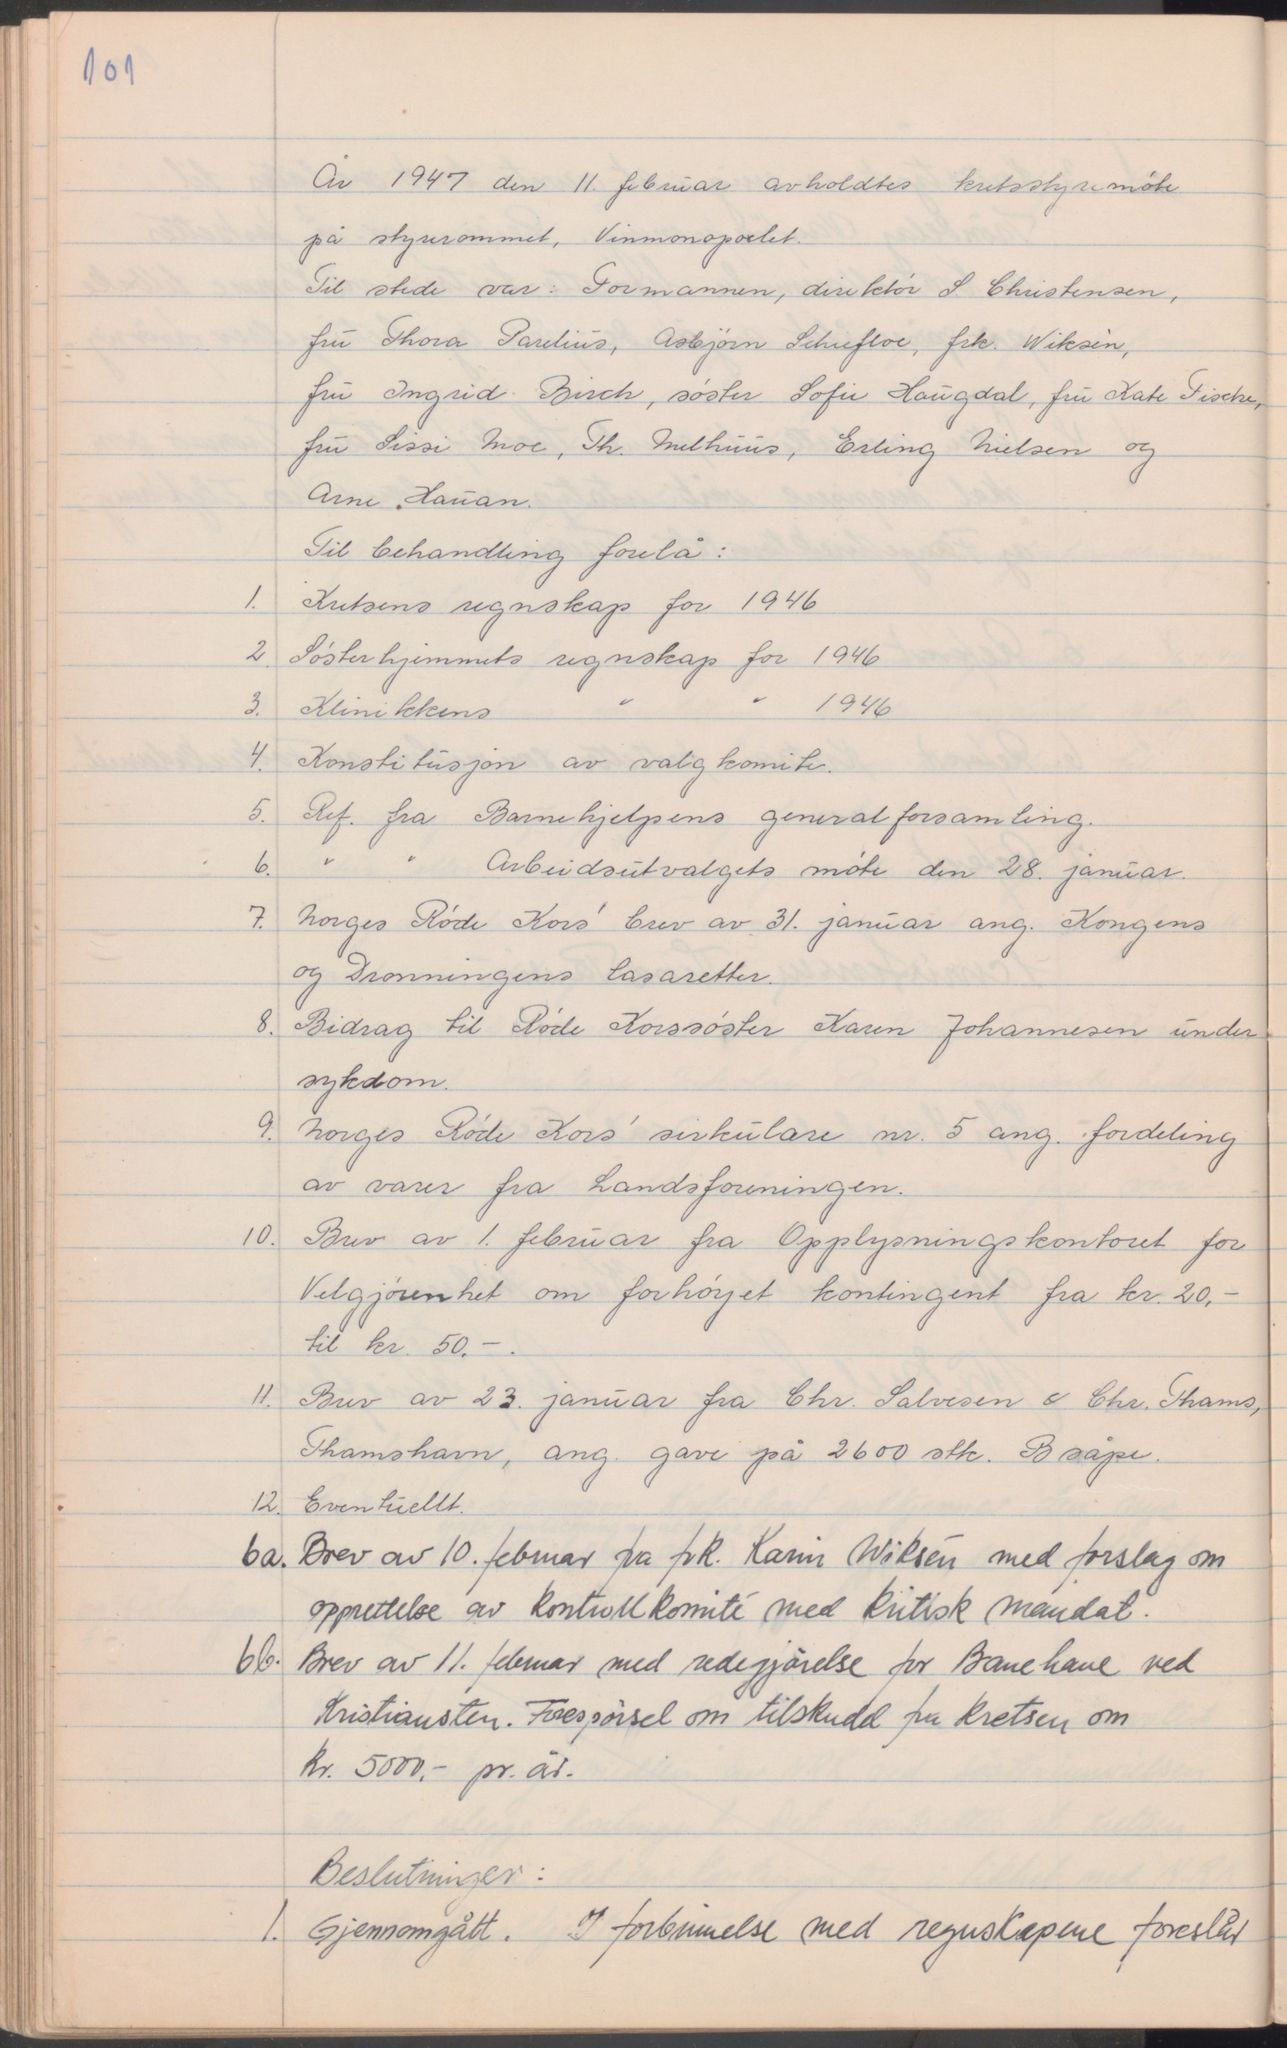 101
År 1947 den 11. februar avholdtes kretsstyremøte
på styrerommet, Vinmonopolet.
Til stede var: Formannen, direktør S Christensen,
fru Thora Parelius, Asbjørn Schefloe, frk. Wiksèn,
fru Ingrid Birch, søster Sofie Haugdal, fru Kate Fische,
fru Sissi Moe, Th. Melhuus, Erling Nielsen og
Arne Hauan.
Til behandling forelå:
1. Kretsens regnskap for 1946
2. Søsterhjemmets regnskap for 1946
3. Klinikkens " " 1946
4. Konstitusjon av valgkomite.
5. Ref. fra Barnehjelpens generalforsamling.
6. " " Arbeidsutvalgets møte den 28. januar.
7. Norges Røde Kors' brev av 31. januar ang. Kongens
og Dronningens lasaretter.
8. Bidrag til Røde Korssøster Karen Johannesen under
sykdom.
9. Norges Røde Kors' sirkulære nr. 5 ang. fordeling
av varer fra Landsforeningen.
10. Brev av 1. februar fra Opplysningskontoret for
Velgjørenhet om forhøyet kontingent fra kr. 20,-
til kr. 50.-.
11. Brev av 23. januar fra Chr. Salvesen & Chr. Thams,
Thamshavn, ang. gave på 2600 stk. B såpe.
12. Eventuellt.
6a. Brev av 10. februar fra frk. Karin Wiksén med forslag om
opprettelse av kontrollkomité med kritisk mandat.
6b. Brev av 11. februar med redegjørelse for Barnehave ved
Kristiansten. Forespørsel om tilskudd fra kretsen om
kr. 5000.- pr. år.
Beslutninger:
1. Gjennomgått. I forbinnelse med regnskapene foreslår